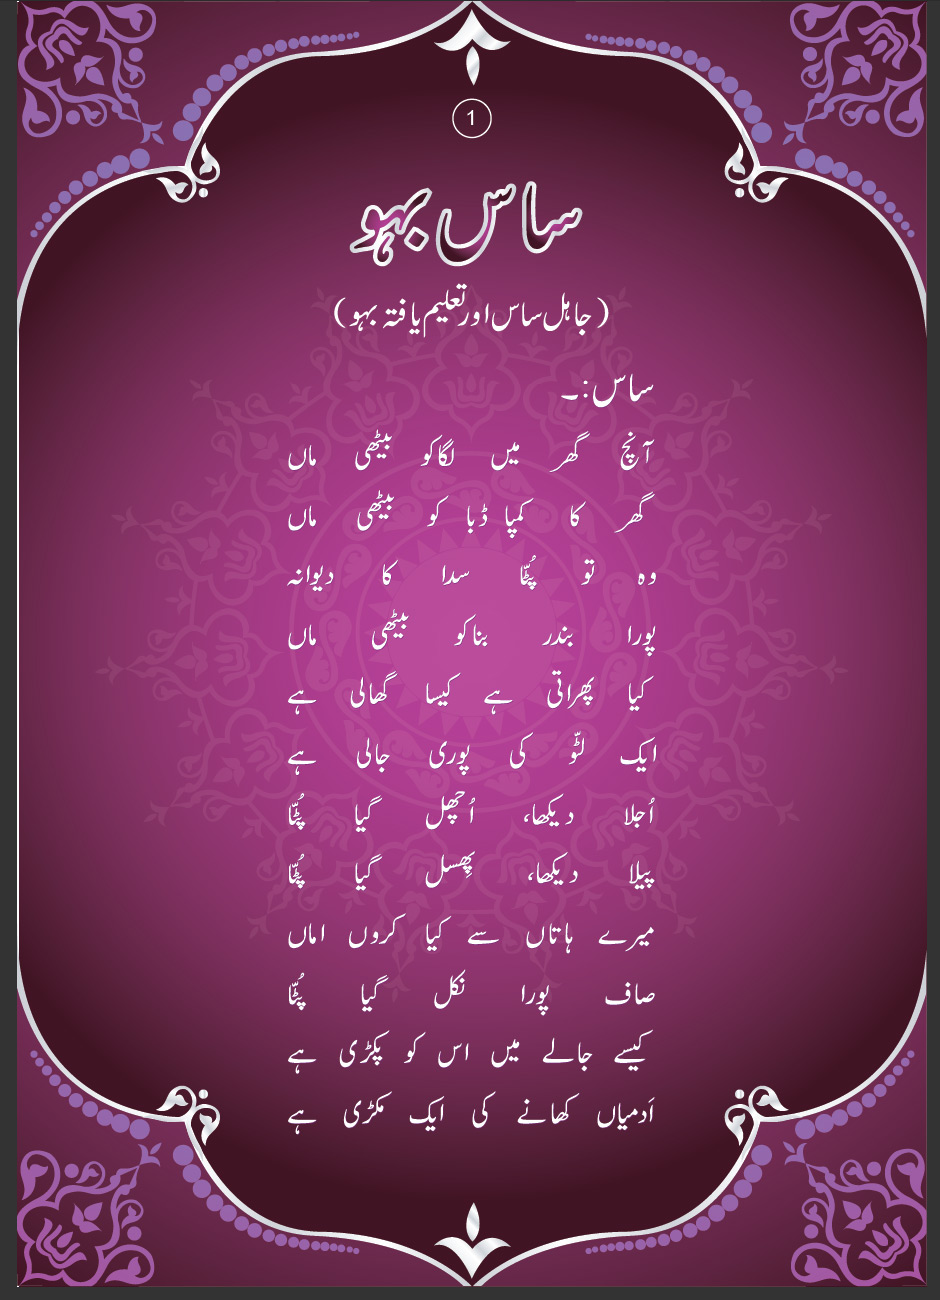 1
ساس بہو
(جاہل ساس اور تعلیم یافتہ بہو)
ساس:۔
آنچ گھر میں لگاکو بیٹھی ماں
گھر کا کمپا ڈبا کو بیٹھی ماں
وہ تو پُٹّا سدا کا دیوانہ
پورا بندر بناکو بیٹھی ماں
کیا پھراتی ہے کیسا گھالی ہے
ایک لٹّو کی پوری جالی ہے
اُجلا دیکھا، اُچھل گیا پُٹّا
پیلا دیکھا، پھِسل گیا پُٹّا
میرے ہاتاں سے کیا کروں اماں
صاف پورا نکل گیا پُٹّا
کیسے جالے میں اس کو پکڑی ہے
اَدمیاں کھانے کی ایک مکڑی ہے